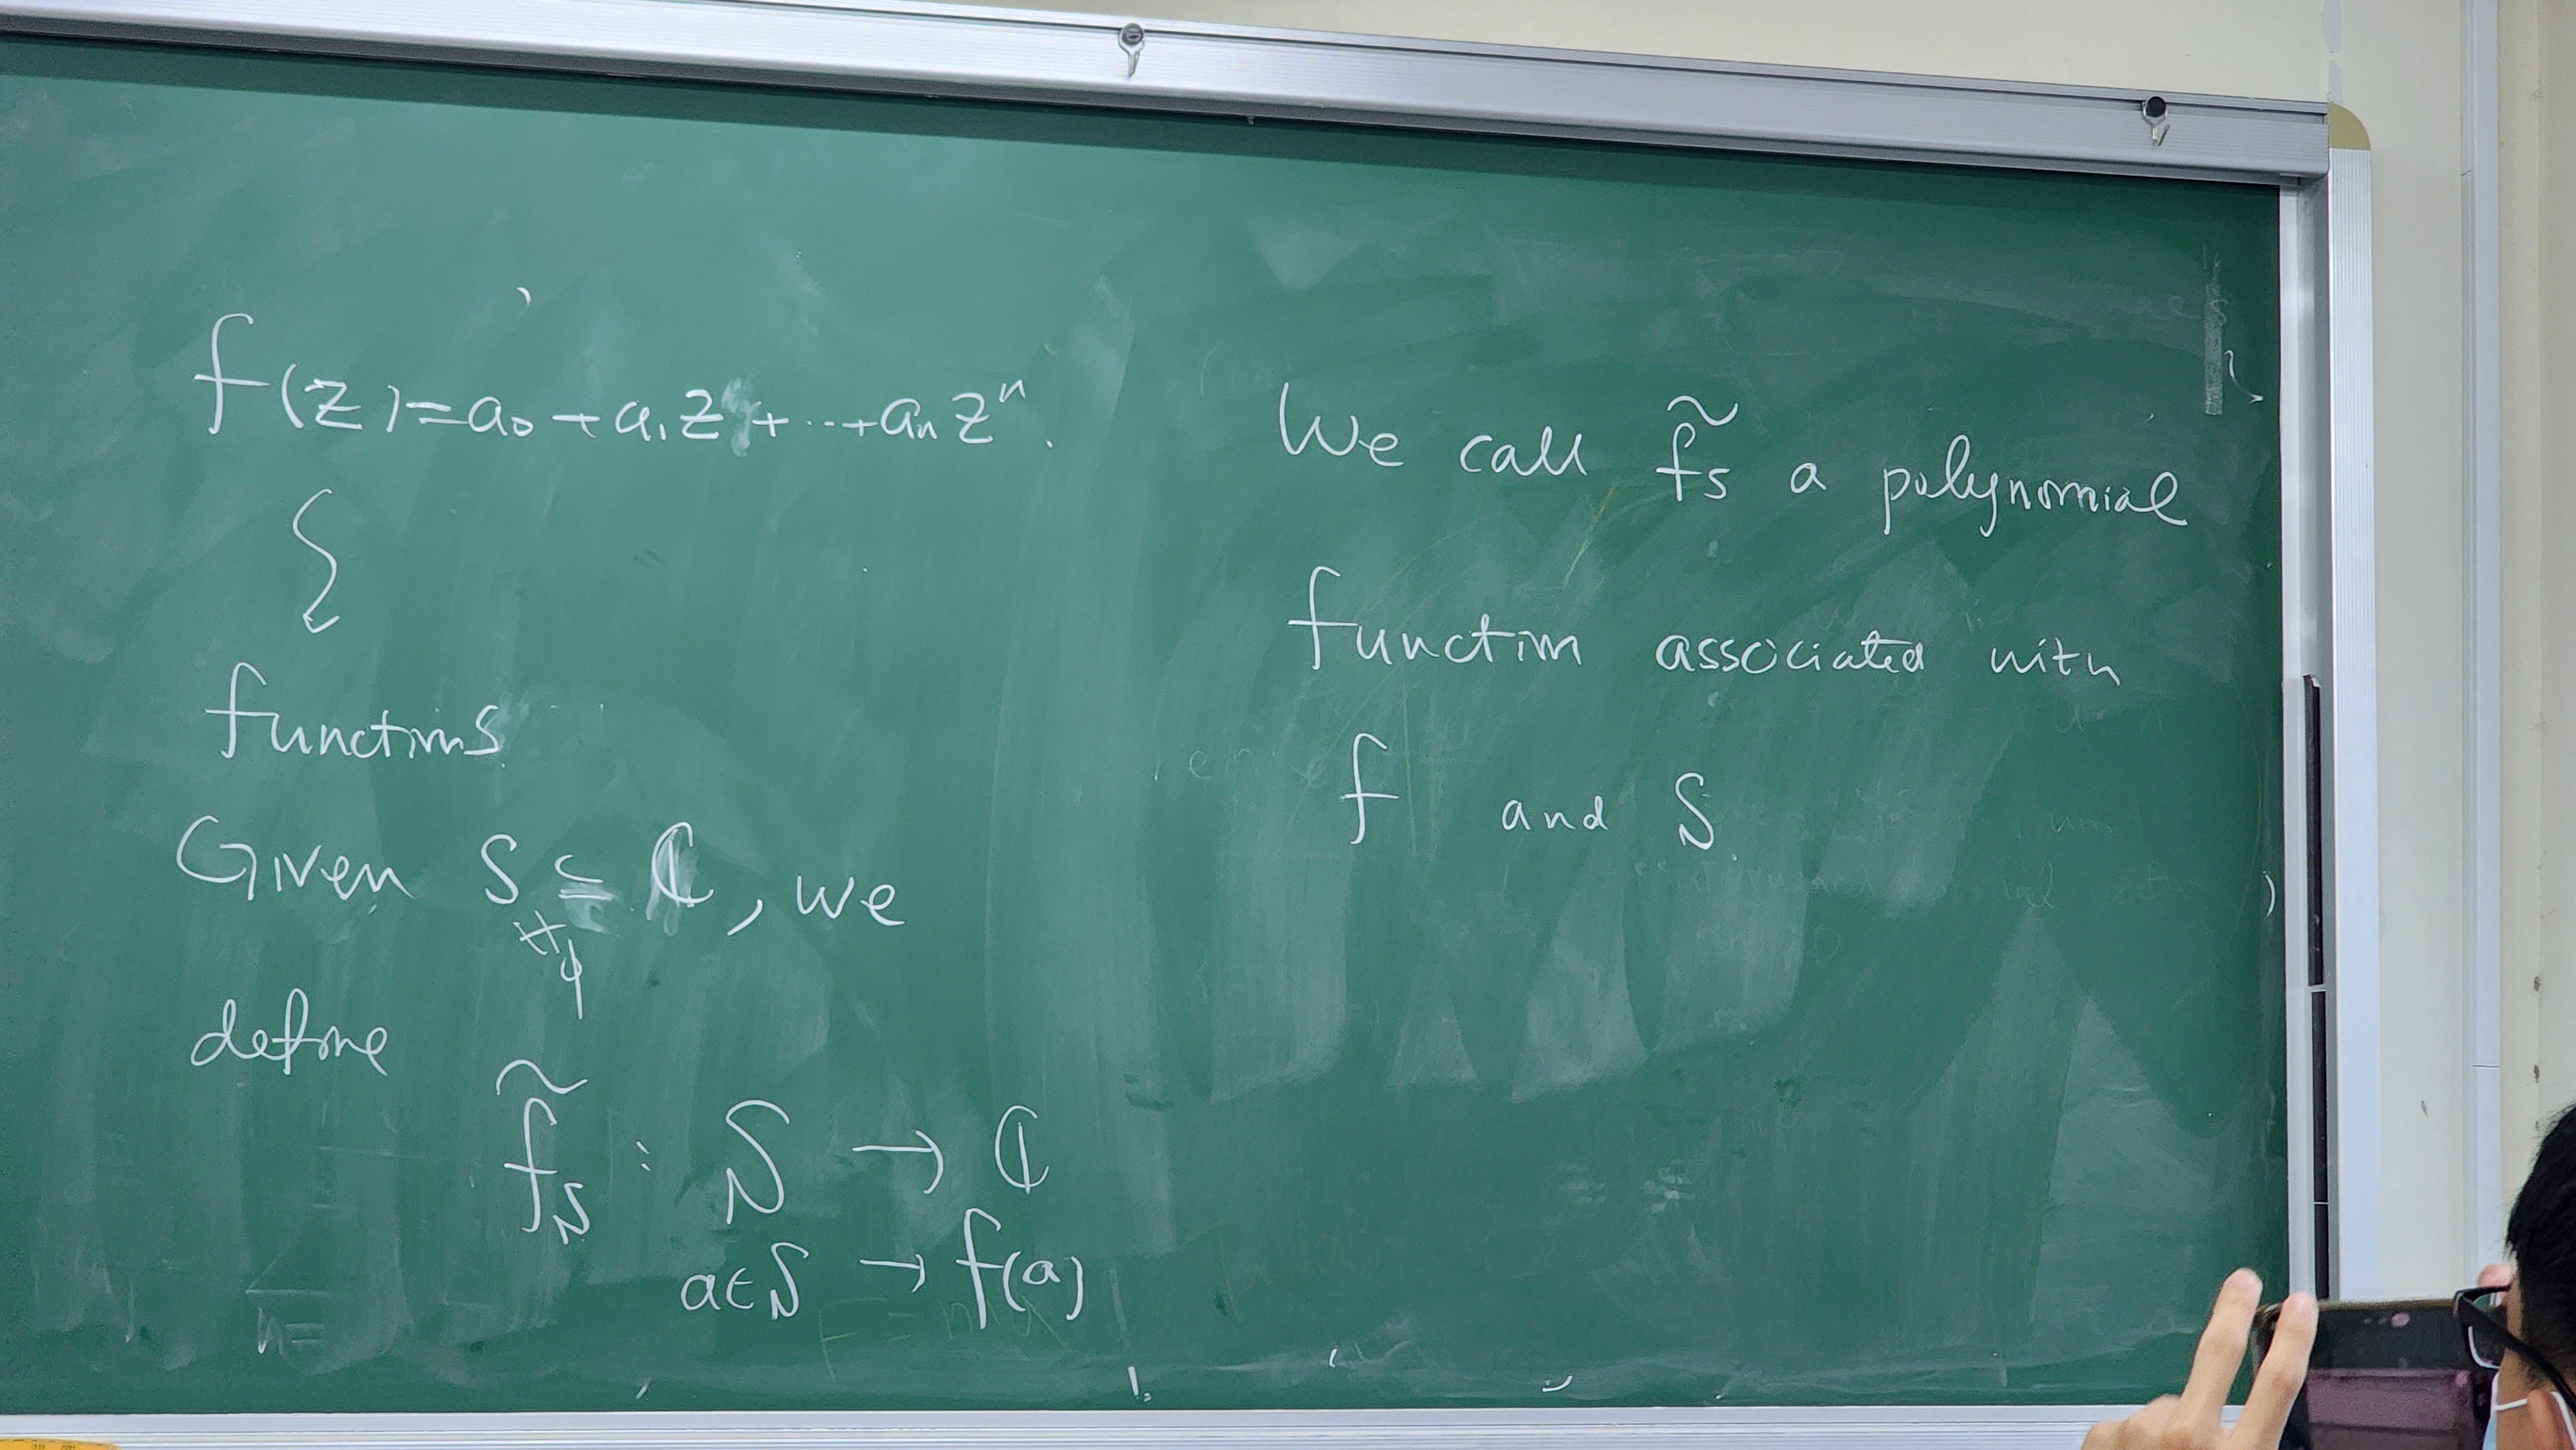 f(z)=a₀+a₁z+⋯+aₙzⁿ.
functions
Given S ⊆ ℂ, we
≠ φ
define
f̃_S : S → ℂ
a∈S → f(a)
We call f̃_S a polynomial
function associated with
f and S.